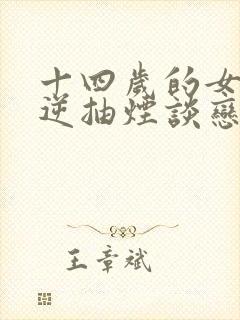 十四歲的女
逆抽煙談戀
王章斌